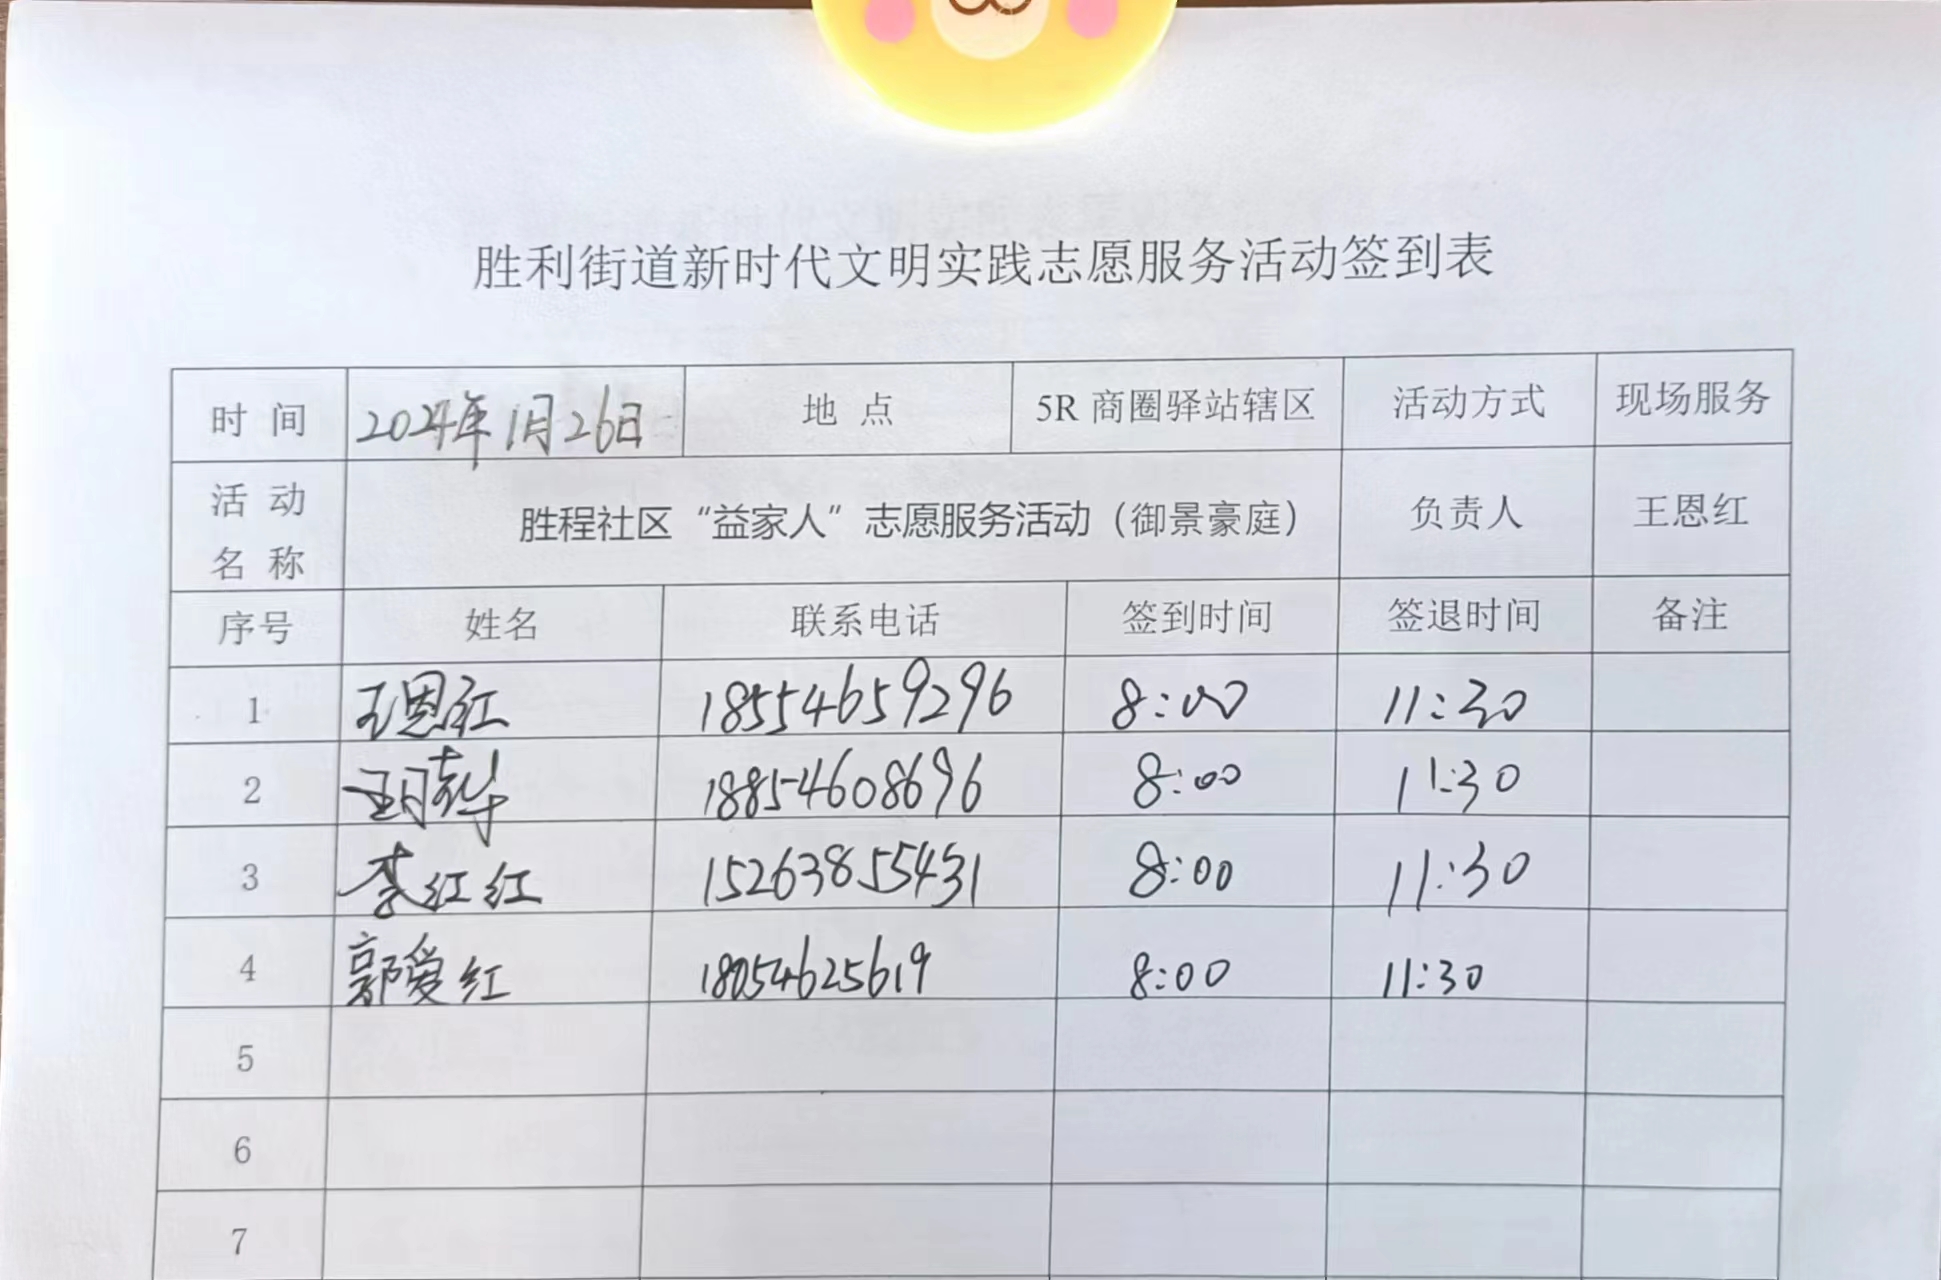 胜利街道新时代文明实践志愿服务活动签到表
时 间 2024年1月26日 地 点 5R 商圈驿站辖区 活动方式 现场服务
活 动
名 称 胜程社区“益家人”志愿服务活动（御景豪庭） 负责人 王恩红
序号 姓名 联系电话 签到时间 签退时间 备注
1 王恩红 18554659296 8:00 11:30
2 18854608696 8:00 11:30
3 李红红 15263855431 8:00 11:30
4 郭爱红 18054625619 8:00 11:30
5
6
7